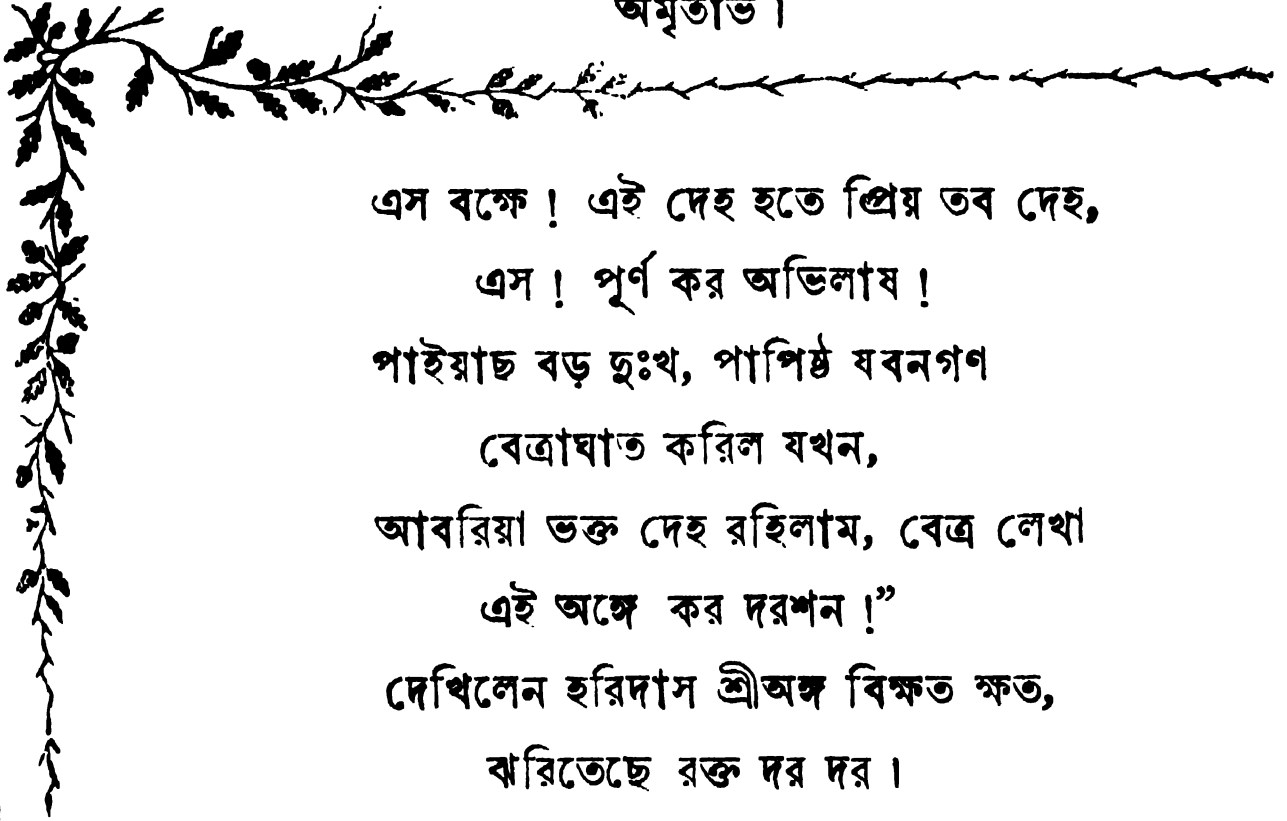 অমৃতাভ।
এস বক্ষে! এই দেহ হতে প্রিয় তব দেহ,
এস! পূর্ণ কর অভিলাষ!
পাইয়াছ বড় দুঃখ, পাপিষ্ঠ যবনগণ
বেত্রাঘাত করিল যখন,
আবরিয়া ভক্ত দেহ রহিলাম, বেত্র লেখা
এই অঙ্গে কর দরশন!”
দেখিলেন হরিদাস শ্রীঅঙ্গ বিক্ষত ক্ষত,
ঝরিতেছে রক্ত দর দর।